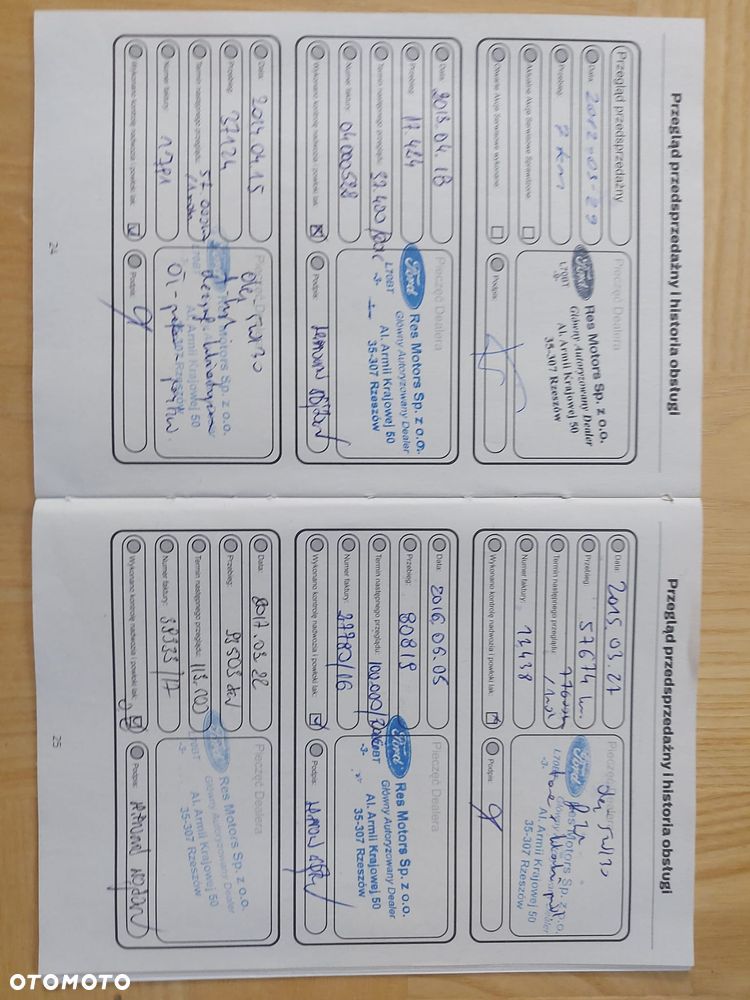 Przegląd przedsprzedażny i historia obsługi
Przegląd przedsprzedażny
Data: 2012-03-29
Przebieg: 7 km
Aktualne Akcje Serwisowe Sprawdzone
Otwarte Akcje Serwisowe wykonane
Pieczęć Dealera
Ford
L70BT
-3-
Res Motors Sp. z o.o.
Główny Autoryzowany Dealer
Al. Armii Krajowej 50
35-307 Rzeszów
Podpis:
Data: 2013.04.18
Przebieg: 17 424
Termin następnego przeglądu: 37.400/
Numer faktury: 04000528
Wykonano kontrolę nadwozia i powłoki lak.
Pieczęć Dealera
Ford
L70BT
-3-
Res Motors Sp. z o.o.
Główny Autoryzowany Dealer
Al. Armii Krajowej 50
35-307 Rzeszów
Podpis:
Data: 2014.04.15
Przebieg: 37124
Termin następnego przeglądu: 57 000
Numer faktury: 12781
Wykonano kontrolę nadwozia i powłoki lak.
Pieczęć Dealera
olej 5W30
Res Motors Sp. z o.o.
Al. Armii Krajowej 50
35-307 Rzeszów
Podpis:
24
Przegląd przedsprzedażny i historia obsługi
Data: 2015.03.27
Przebieg: 57674 km
Termin następnego przeglądu:
Numer faktury: 12438
Wykonano kontrolę nadwozia i powłoki lak.
Pieczęć Dealera
Ford
L70BT
-3-
olej 5W30
Res Motors Sp. z o.o.
Al. Armii Krajowej 50
35-307 Rzeszów
Podpis:
Data: 2016.05.05
Przebieg: 80819
Termin następnego przeglądu: 100.000/
Numer faktury: 27780/16
Wykonano kontrolę nadwozia i powłoki lak.
Pieczęć Dealera
Ford
-3-
Res Motors Sp. z o.o.
Główny Autoryzowany Dealer
Al. Armii Krajowej 50
35-307 Rzeszów
Podpis:
Data: 2017.03.22
Przebieg:
Termin następnego przeglądu:
Numer faktury:
Wykonano kontrolę nadwozia i powłoki lak.
Pieczęć Dealera
Ford
L70BT
-3-
Res Motors Sp. z o.o.
Główny Autoryzowany Dealer
Al. Armii Krajowej 50
35-307 Rzeszów
Podpis:
25
OTOMOTO